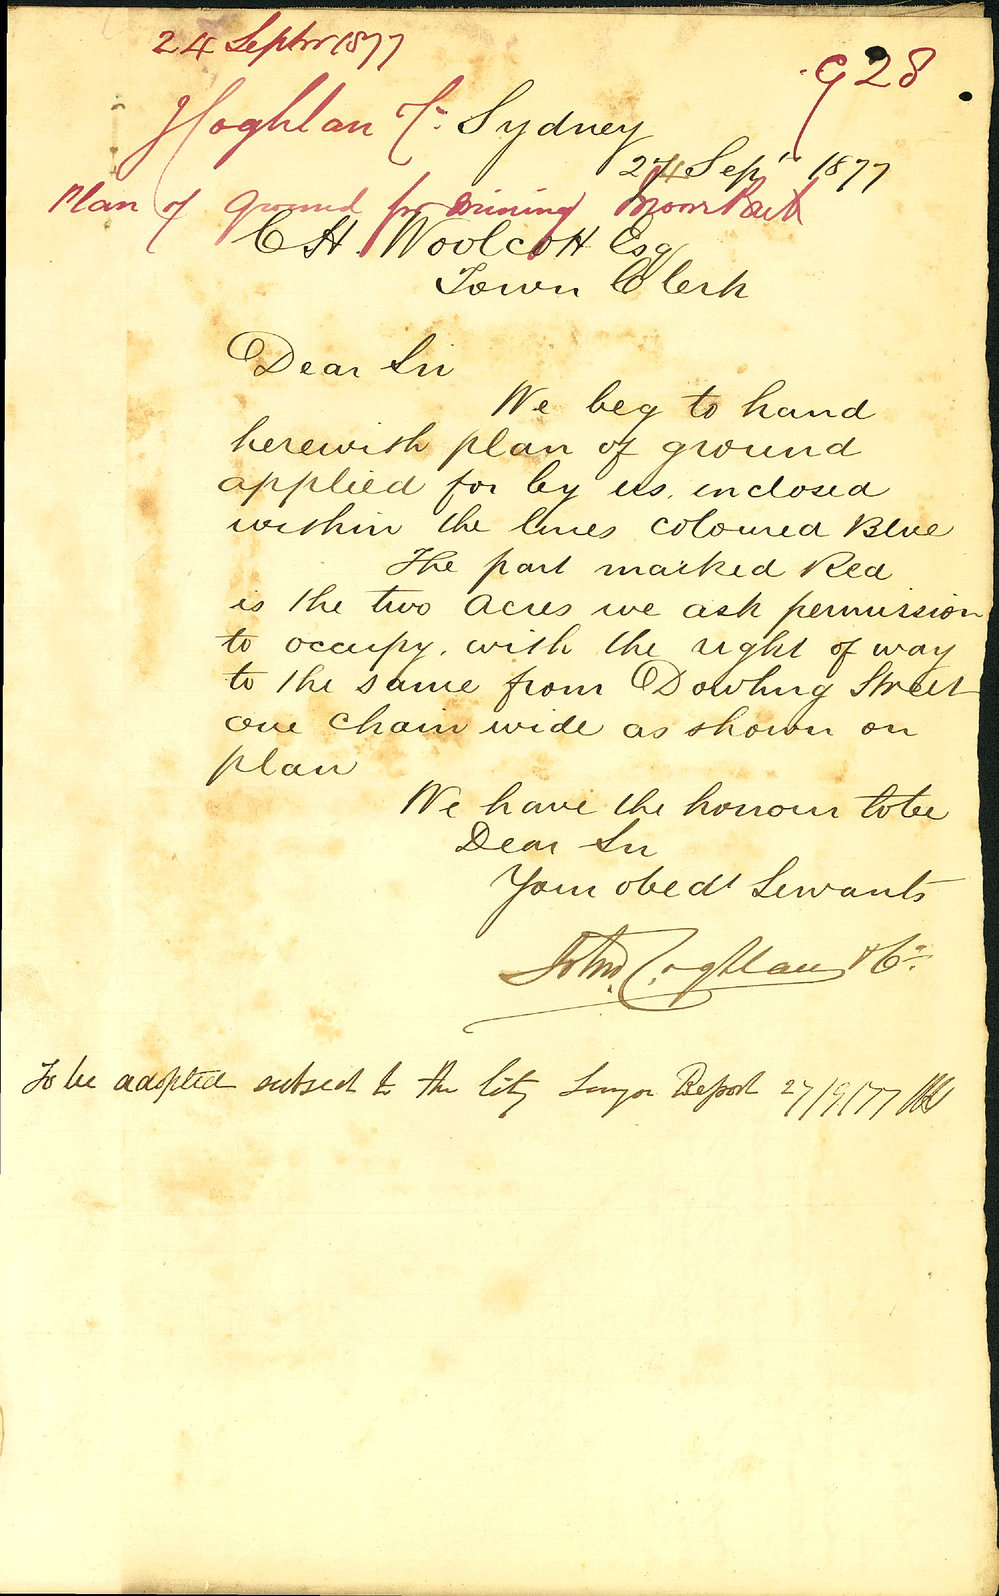 24 Septbr 1877
928
J Coghlan Co Sydney
24 Sepr 1877
Plan of ground for mining Moore Park
C H. Woolcott Esq
Town Clerk
Dear Sir
We beg to hand
herewith plan of ground
applied for by us. inclosed
within the lines coloured Blue
The part marked Red
is the two Acres we ask permission
to occupy. with the right of way
to the same from Dowling Street
one chain wide as shown on
plan
We have the honour to be
Dear Sir
Your obedt Servants
John Coghlan & Co.
To be adopted subject to the City Surveyor Report 27/9/77